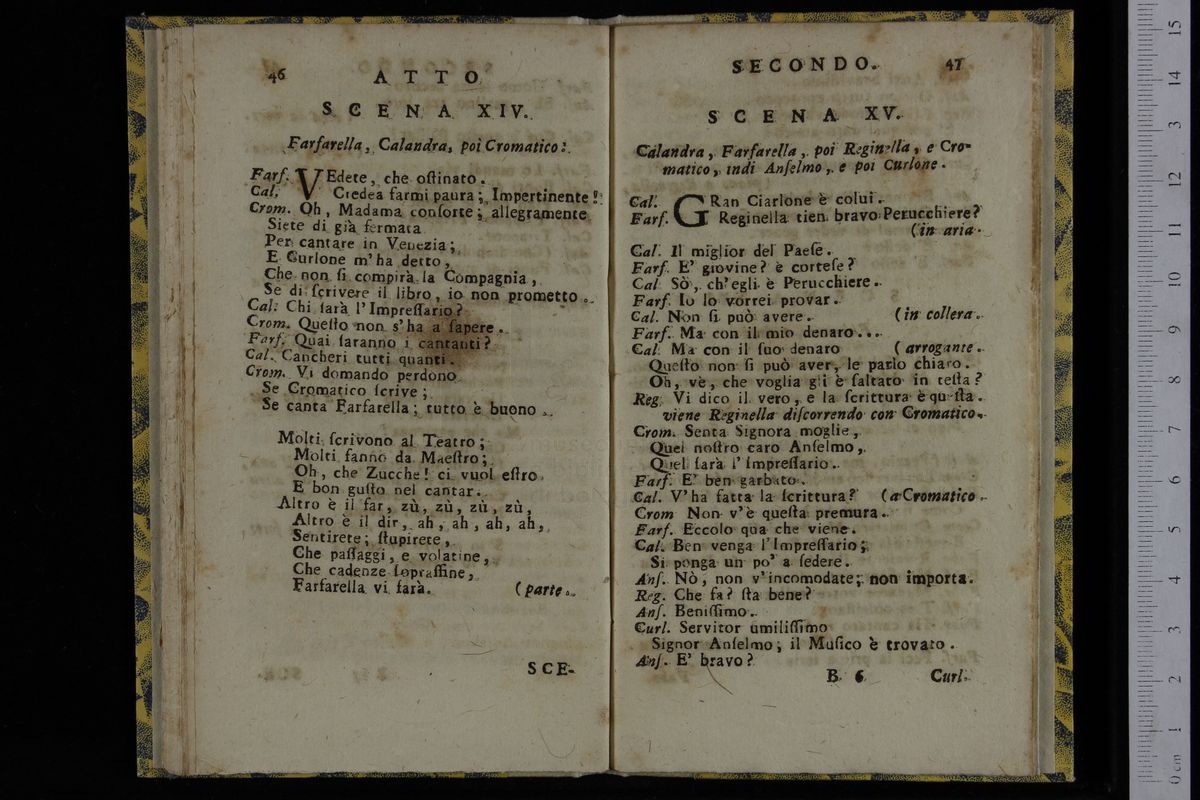 46 ATTO
SCENA XIV.
Farfarella, Calandra, poi Cromatico.
Farf. VEdete, che oſtinato.
Cal. Credea farmi paura; Impertinente!
Crom. Oh, Madama conſorte; allegramente
Siete di già fermata
Per cantare in Venezia;
E Curlone m'ha detto,
Che non ſi compirà la Compagnia,
Se di ſcrivere il libro, io non prometto.
Cal. Chi ſarà l'Impreſſario?
Crom. Queſto non s'ha a ſapere.
Farf. Quai ſaranno i cantanti?
Cal. Cancheri tutti quanti.
Crom. Vi domando perdono
Se Cromatico ſcrive;
Se canta Farfarella; tutto è buono.
Molti ſcrivono al Teatro;
Molti fanno da Maeſtro;
Oh, che Zucche! ci vuol eſtro,
E bon guſto nel cantar.
Altro è il far, zù, zù, zù, zù,
Altro è il dir, ah, ah, ah, ah,
Sentirete; ſtupirete,
Che paſſaggi, e volatine,
Che cadenze ſopraffine,
Farfarella vi farà. (parte.
SCE-
SECONDO. 47
SCENA XV.
Calandra, Farfarella, poi Reginella, e Cro-
matico, indi Anſelmo, e poi Curlone.
Cal. GRan Ciarlone è colui.
Farf. Reginella tien bravo Perucchiere?
(in aria.
Cal. Il miglior del Paeſe.
Farf. E' giovine? è corteſe?
Cal Sò, ch'egli è Perucchiere.
Farf. Io lo vorrei provar.
Cal. Non ſi può avere. (in collera.
Farf. Ma con il mio denaro...
Cal. Ma con il ſuo denaro (arrogante.
Queſto non ſi può aver, le parlo chiaro.
Oh, vè, che voglia gli è ſaltato in teſta?
Reg. Vi dico il vero, e la ſcrittura è queſta.
viene Reginella diſcorrendo con Cromatico.
Crom. Senta Signora moglie,
Quel noſtro caro Anſelmo,
Quel ſarà l'Impreſſario.
Farf. E' ben garbato.
Cal. V'ha fatta la ſcrittura? (a Cromatico.
Crom Non v'è queſta premura.
Farf. Eccolo qua che viene.
Cal. Ben venga l'Impreſſario;
Si ponga un po' a ſedere.
Anſ. Nò, non v'incomodate; non importa.
Reg. Che fa? ſta bene?
Anſ. Beniſſimo.
Curl. Servitor umiliſſimo
Signor Anſelmo; il Muſico è trovato.
Anſ. E' bravo?
B 6 Curl.
0 cm 1 2 3 4 5 6 7 8 9 10 11 12 13 14 15